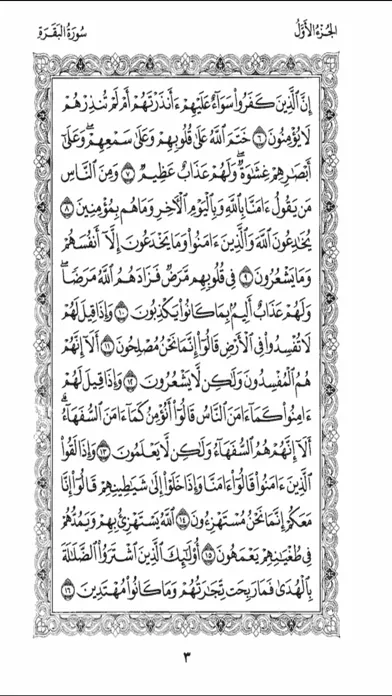 الجُزْءُ الأَوَّلُ
سُورَةُ البَقَرَةِ
إِنَّ ٱلَّذِينَ كَفَرُواْ سَوَآءٌ عَلَيْهِمْ ءَأَنذَرْتَهُمْ أَمْ لَمْ تُنذِرْهُمْ
لَا يُؤْمِنُونَ ٦ خَتَمَ ٱللَّهُ عَلَىٰ قُلُوبِهِمْ وَعَلَىٰ سَمْعِهِمْ ۖ وَعَلَىٰٓ
أَبْصَٰرِهِمْ غِشَٰوَةٌ ۖ وَلَهُمْ عَذَابٌ عَظِيمٌ ٧ وَمِنَ ٱلنَّاسِ
مَن يَقُولُ ءَامَنَّا بِٱللَّهِ وَبِٱلْيَوْمِ ٱلْءَاخِرِ وَمَا هُم بِمُؤْمِنِينَ ٨
يُخَٰدِعُونَ ٱللَّهَ وَٱلَّذِينَ ءَامَنُواْ وَمَا يَخْدَعُونَ إِلَّآ أَنفُسَهُمْ
وَمَا يَشْعُرُونَ ٩ فِى قُلُوبِهِم مَّرَضٌ فَزَادَهُمُ ٱللَّهُ مَرَضًا ۖ
وَلَهُمْ عَذَابٌ أَلِيمٌۢ بِمَا كَانُواْ يَكْذِبُونَ ١٠ وَإِذَا قِيلَ لَهُمْ
لَا تُفْسِدُواْ فِى ٱلْأَرْضِ قَالُوٓاْ إِنَّمَا نَحْنُ مُصْلِحُونَ ١١ أَلَآ إِنَّهُمْ
هُمُ ٱلْمُفْسِدُونَ وَلَٰكِن لَّا يَشْعُرُونَ ١٢ وَإِذَا قِيلَ لَهُمْ
ءَامِنُواْ كَمَآ ءَامَنَ ٱلنَّاسُ قَالُوٓاْ أَنُؤْمِنُ كَمَآ ءَامَنَ ٱلسُّفَهَآءُ ۗ
أَلَآ إِنَّهُمْ هُمُ ٱلسُّفَهَآءُ وَلَٰكِن لَّا يَعْلَمُونَ ١٣ وَإِذَا لَقُواْ
ٱلَّذِينَ ءَامَنُواْ قَالُوٓاْ ءَامَنَّا وَإِذَا خَلَوْاْ إِلَىٰ شَيَٰطِينِهِمْ قَالُوٓاْ إِنَّا
مَعَكُمْ إِنَّمَا نَحْنُ مُسْتَهْزِءُونَ ١٤ ٱللَّهُ يَسْتَهْزِئُ بِهِمْ وَيَمُدُّهُمْ
فِى طُغْيَٰنِهِمْ يَعْمَهُونَ ١٥ أُوْلَٰٓئِكَ ٱلَّذِينَ ٱشْتَرَوُاْ ٱلضَّلَٰلَةَ
بِٱلْهُدَىٰ فَمَا رَبِحَت تِّجَٰرَتُهُمْ وَمَا كَانُواْ مُهْتَدِينَ ١٦
٣